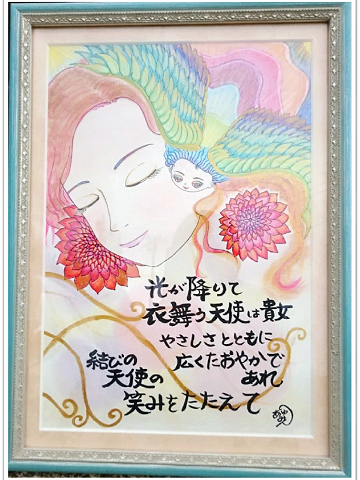 光が降りて
衣舞う天使は貴女
やさしさとともに
広くたおやかで
あれ
結びの
天使の
笑みをたたえて